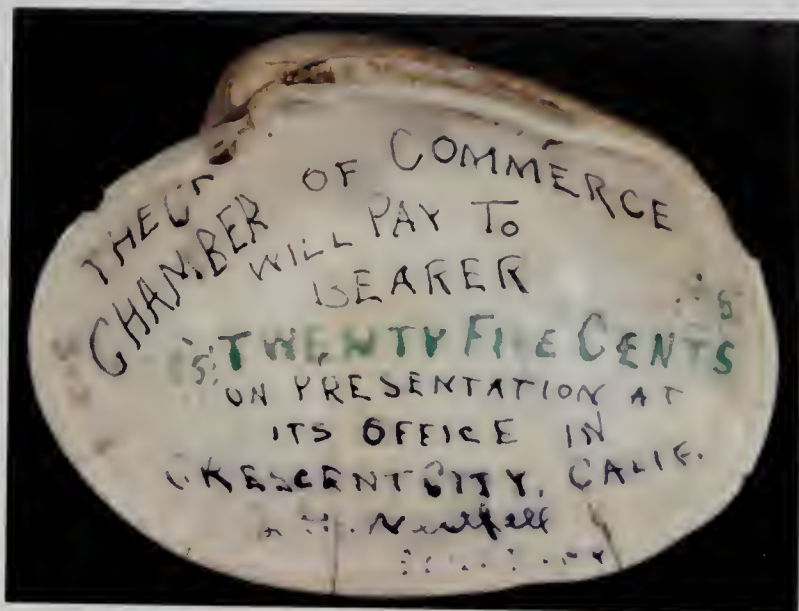 THE
CHAMBER OF COMMERCE
WILL PAY TO
BEARER
TWENTY FIVE CENTS
ON PRESENTATION AT
ITS OFFICE IN
CRESCENT CITY, CALIF.